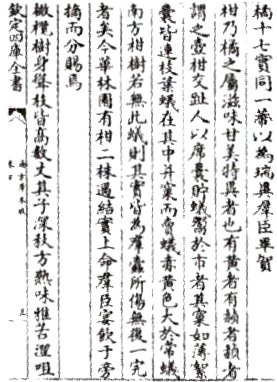 橘十七實同一蔕以為瑞異羣臣畢賀
柑乃橘之屬滋味甘美特異者也有黃者有赬者赬者
謂之壺柑交趾人以席囊貯蟻鬻於市者其窠如薄絮
囊皆連枝葉蟻在其中并窠而賣蟻赤黃色大於常蟻
南方柑樹若無此蟻則其實皆為羣蠧所傷無復一完
者矣今華林園有柑二株遇結實上命羣臣宴飲于旁
摘而分賜焉
橄欖樹身聳枝皆高數丈其子深秋方熟味雖苦澀咀
欽定四庫全書
南方草木狀
卷下